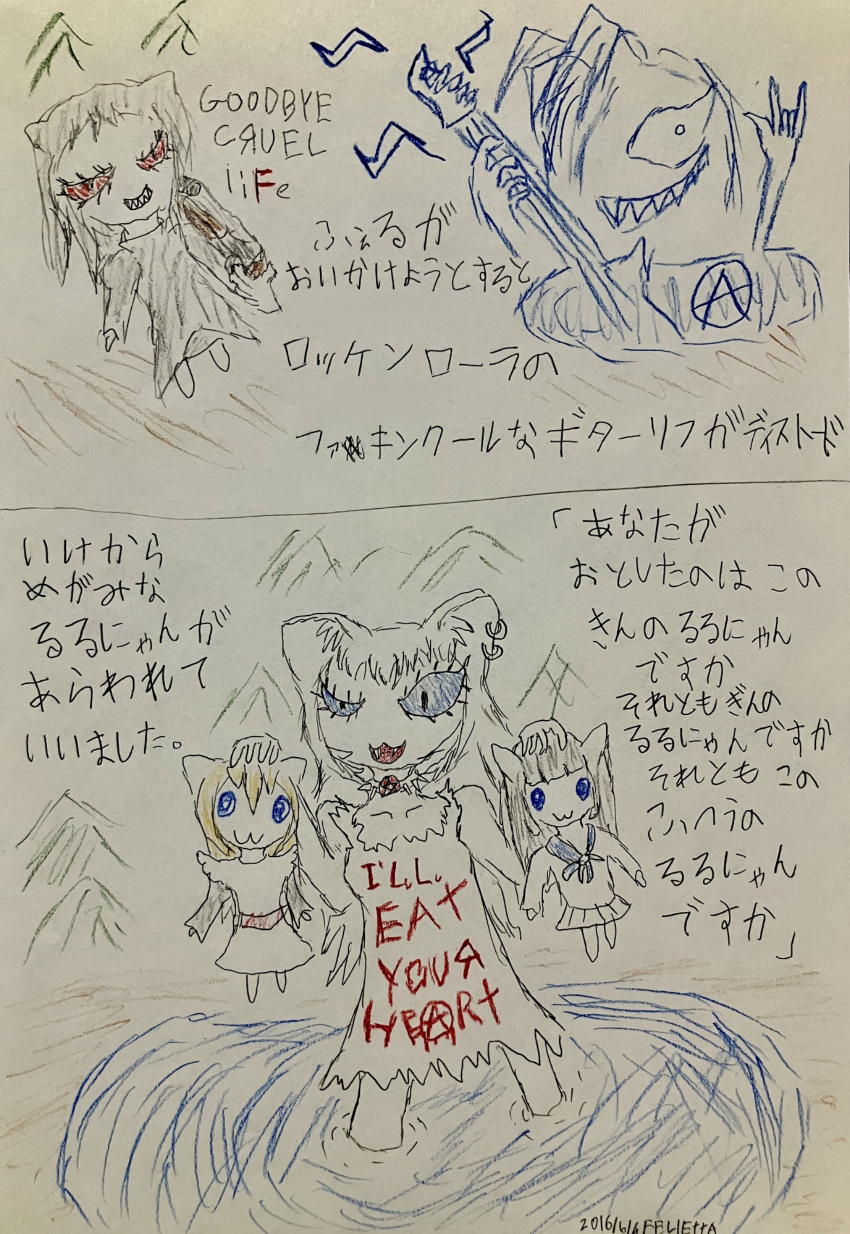 GOODBYE
CЯUEL
liFe
ふぇるが
おいかけようとすると
ロッケンローラの
ファッキンクールなギターリフがディストード
「あなたが
おとしたのはこの
きんのるるにゃん
ですか
それともぎんの
るるにゃんですか
それともこの
るるにゃん
ですか」
いけから
めがみな
るるにゃんが
あらわれて
いいました。
I'LL
EAT
YOUЯ
HEART
2016/6/6 FELIETTA